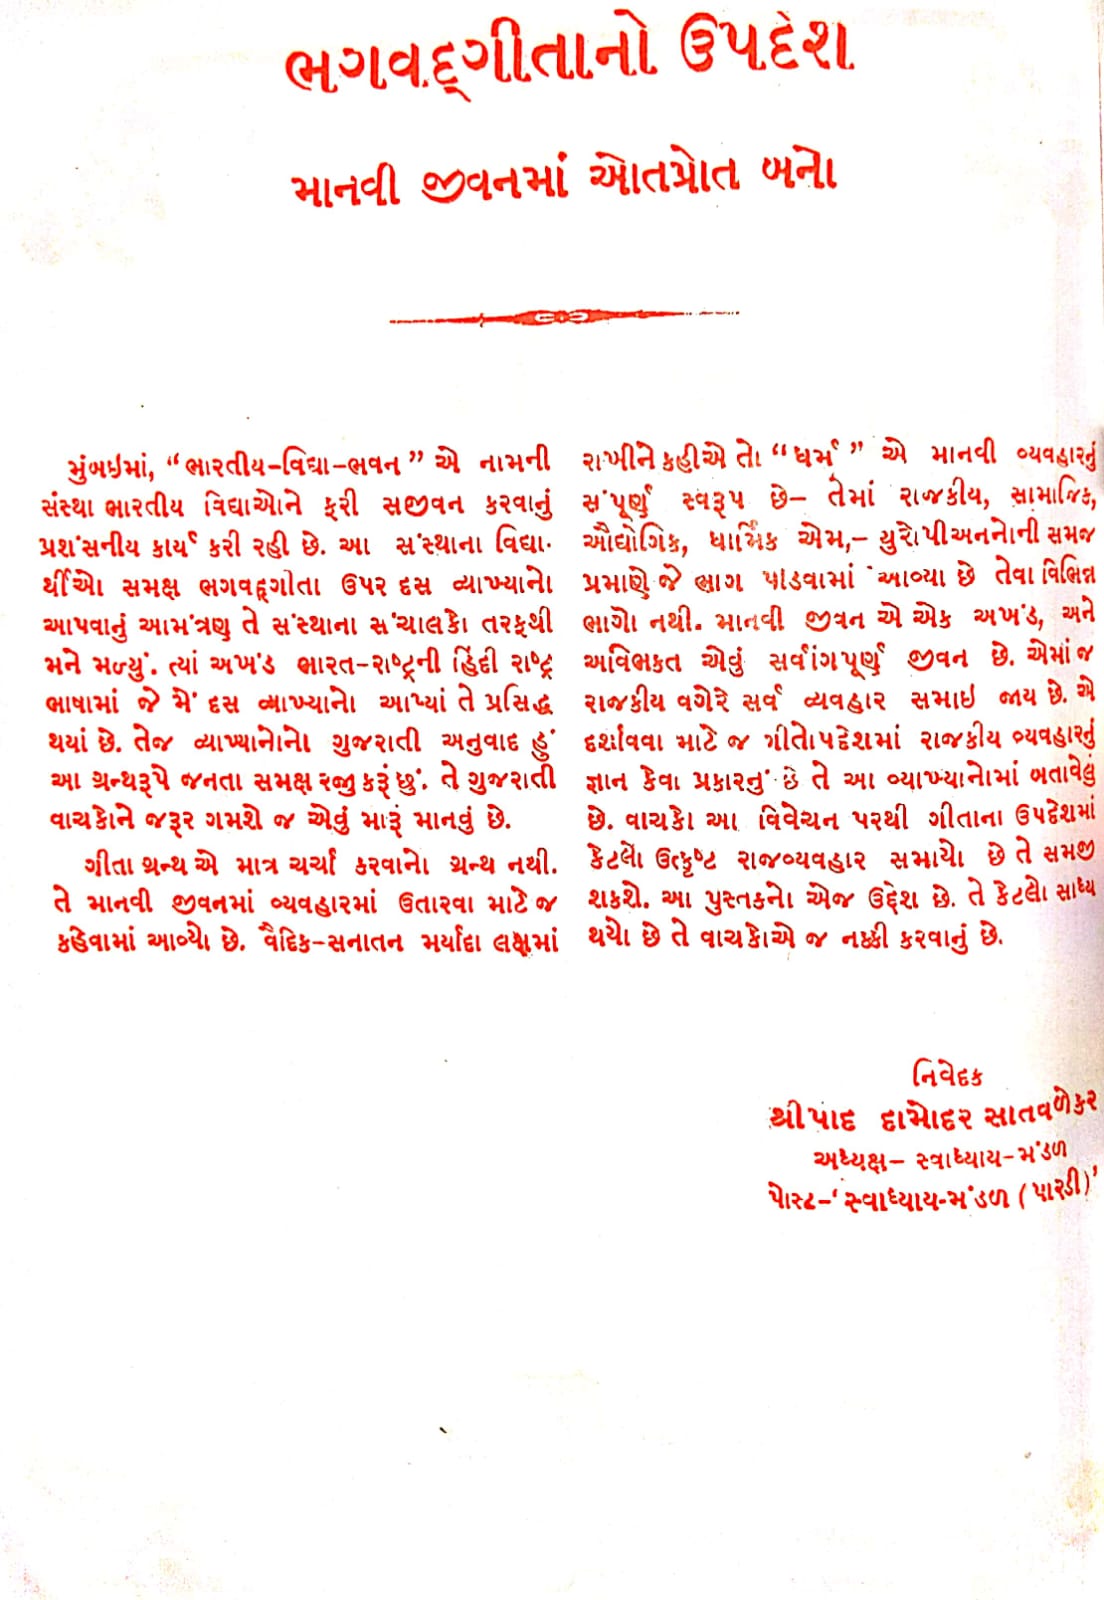 ભગવદ્‌ગીતાનો ઉપદેશ
માનવી જીવનમાં ઓતપ્રોત બનો
મુંબઇમાં, “ભારતીય-વિદ્યા-ભવન” એ નામની
સંસ્થા ભારતીય વિદ્યાઓને ફરી સજીવન કરવાનું
પ્રશંસનીય કાર્ય કરી રહી છે. આ સંસ્થાના વિદ્યા-
ર્થીઓ સમક્ષ ભગવદ્‌ગીતા ઉપર દસ વ્યાખ્યાનો
આપવાનું આમંત્રણ તે સંસ્થાના સંચાલકો તરફથી
મને મળ્યું. ત્યાં અખંડ ભારત-રાષ્ટ્રની હિંદી રાષ્ટ્ર
ભાષામાં જે મેં દસ વ્યાખ્યાનો આપ્યાં તે પ્રસિદ્ધ
થયાં છે. તેજ વ્યાખ્યાનોનો ગુજરાતી અનુવાદ હું
આ ગ્રન્થરૂપે જનતા સમક્ષ રજી કરૂં છું. તે ગુજરાતી
વાચકોને જરૂર ગમશે જ એવું મારૂં માનવું છે.
ગીતા ગ્રન્થ એ માત્ર ચર્ચા કરવાનો ગ્રન્થ નથી.
તે માનવી જીવનમાં વ્યવહારમાં ઉતારવા માટે જ
કહેવામાં આવ્યો છે. વૈદિક-સનાતન મર્યાદા લક્ષમાં
રાખીને કહીએ તો “ધર્મ” એ માનવી વ્યવહારનું
સંપૂર્ણ સ્વરૂપ છે- તેમાં રાજકીય, સામાજિક,
ઔદ્યોગિક, ધાર્મિક એમ,- યુરોપીઅનનોની સમજ
પ્રમાણે જે ભાગ પાડવામાં આવ્યા છે તેવા વિભિન્ન
ભાગો નથી. માનવી જીવન એ એક અખંડ, અને
અવિભકત એવું સર્વાંગપૂર્ણ જીવન છે. એમાં જ
રાજકીય વગેરે સર્વ વ્યવહાર સમાઇ જાય છે. એ
દર્શાવવા માટે જ ગીતોપદેશમાં રાજકીય વ્યવહારનું
જ્ઞાન કેવા પ્રકારનું છે તે આ વ્યાખ્યાનોમાં બતાવેલું
છે. વાચકો આ વિવેચન પરથી ગીતાના ઉપદેશમાં
કેટલો ઉત્કૃષ્ટ રાજવ્યવહાર સમાયો છે તે સમજી
શકશે. આ પુસ્તકનો એજ ઉદ્દેશ છે. તે કેટલો સાધ્ય
થયો છે તે વાચકોએ જ નક્કી કરવાનું છે.
નિવેદક
શ્રીપાદ દામોદર સાતવળેકર
અધ્યક્ષ- સ્વાધ્યાય-મંડળ
પોસ્ટ-‘સ્વાધ્યાય-મંડળ (પારડી)’